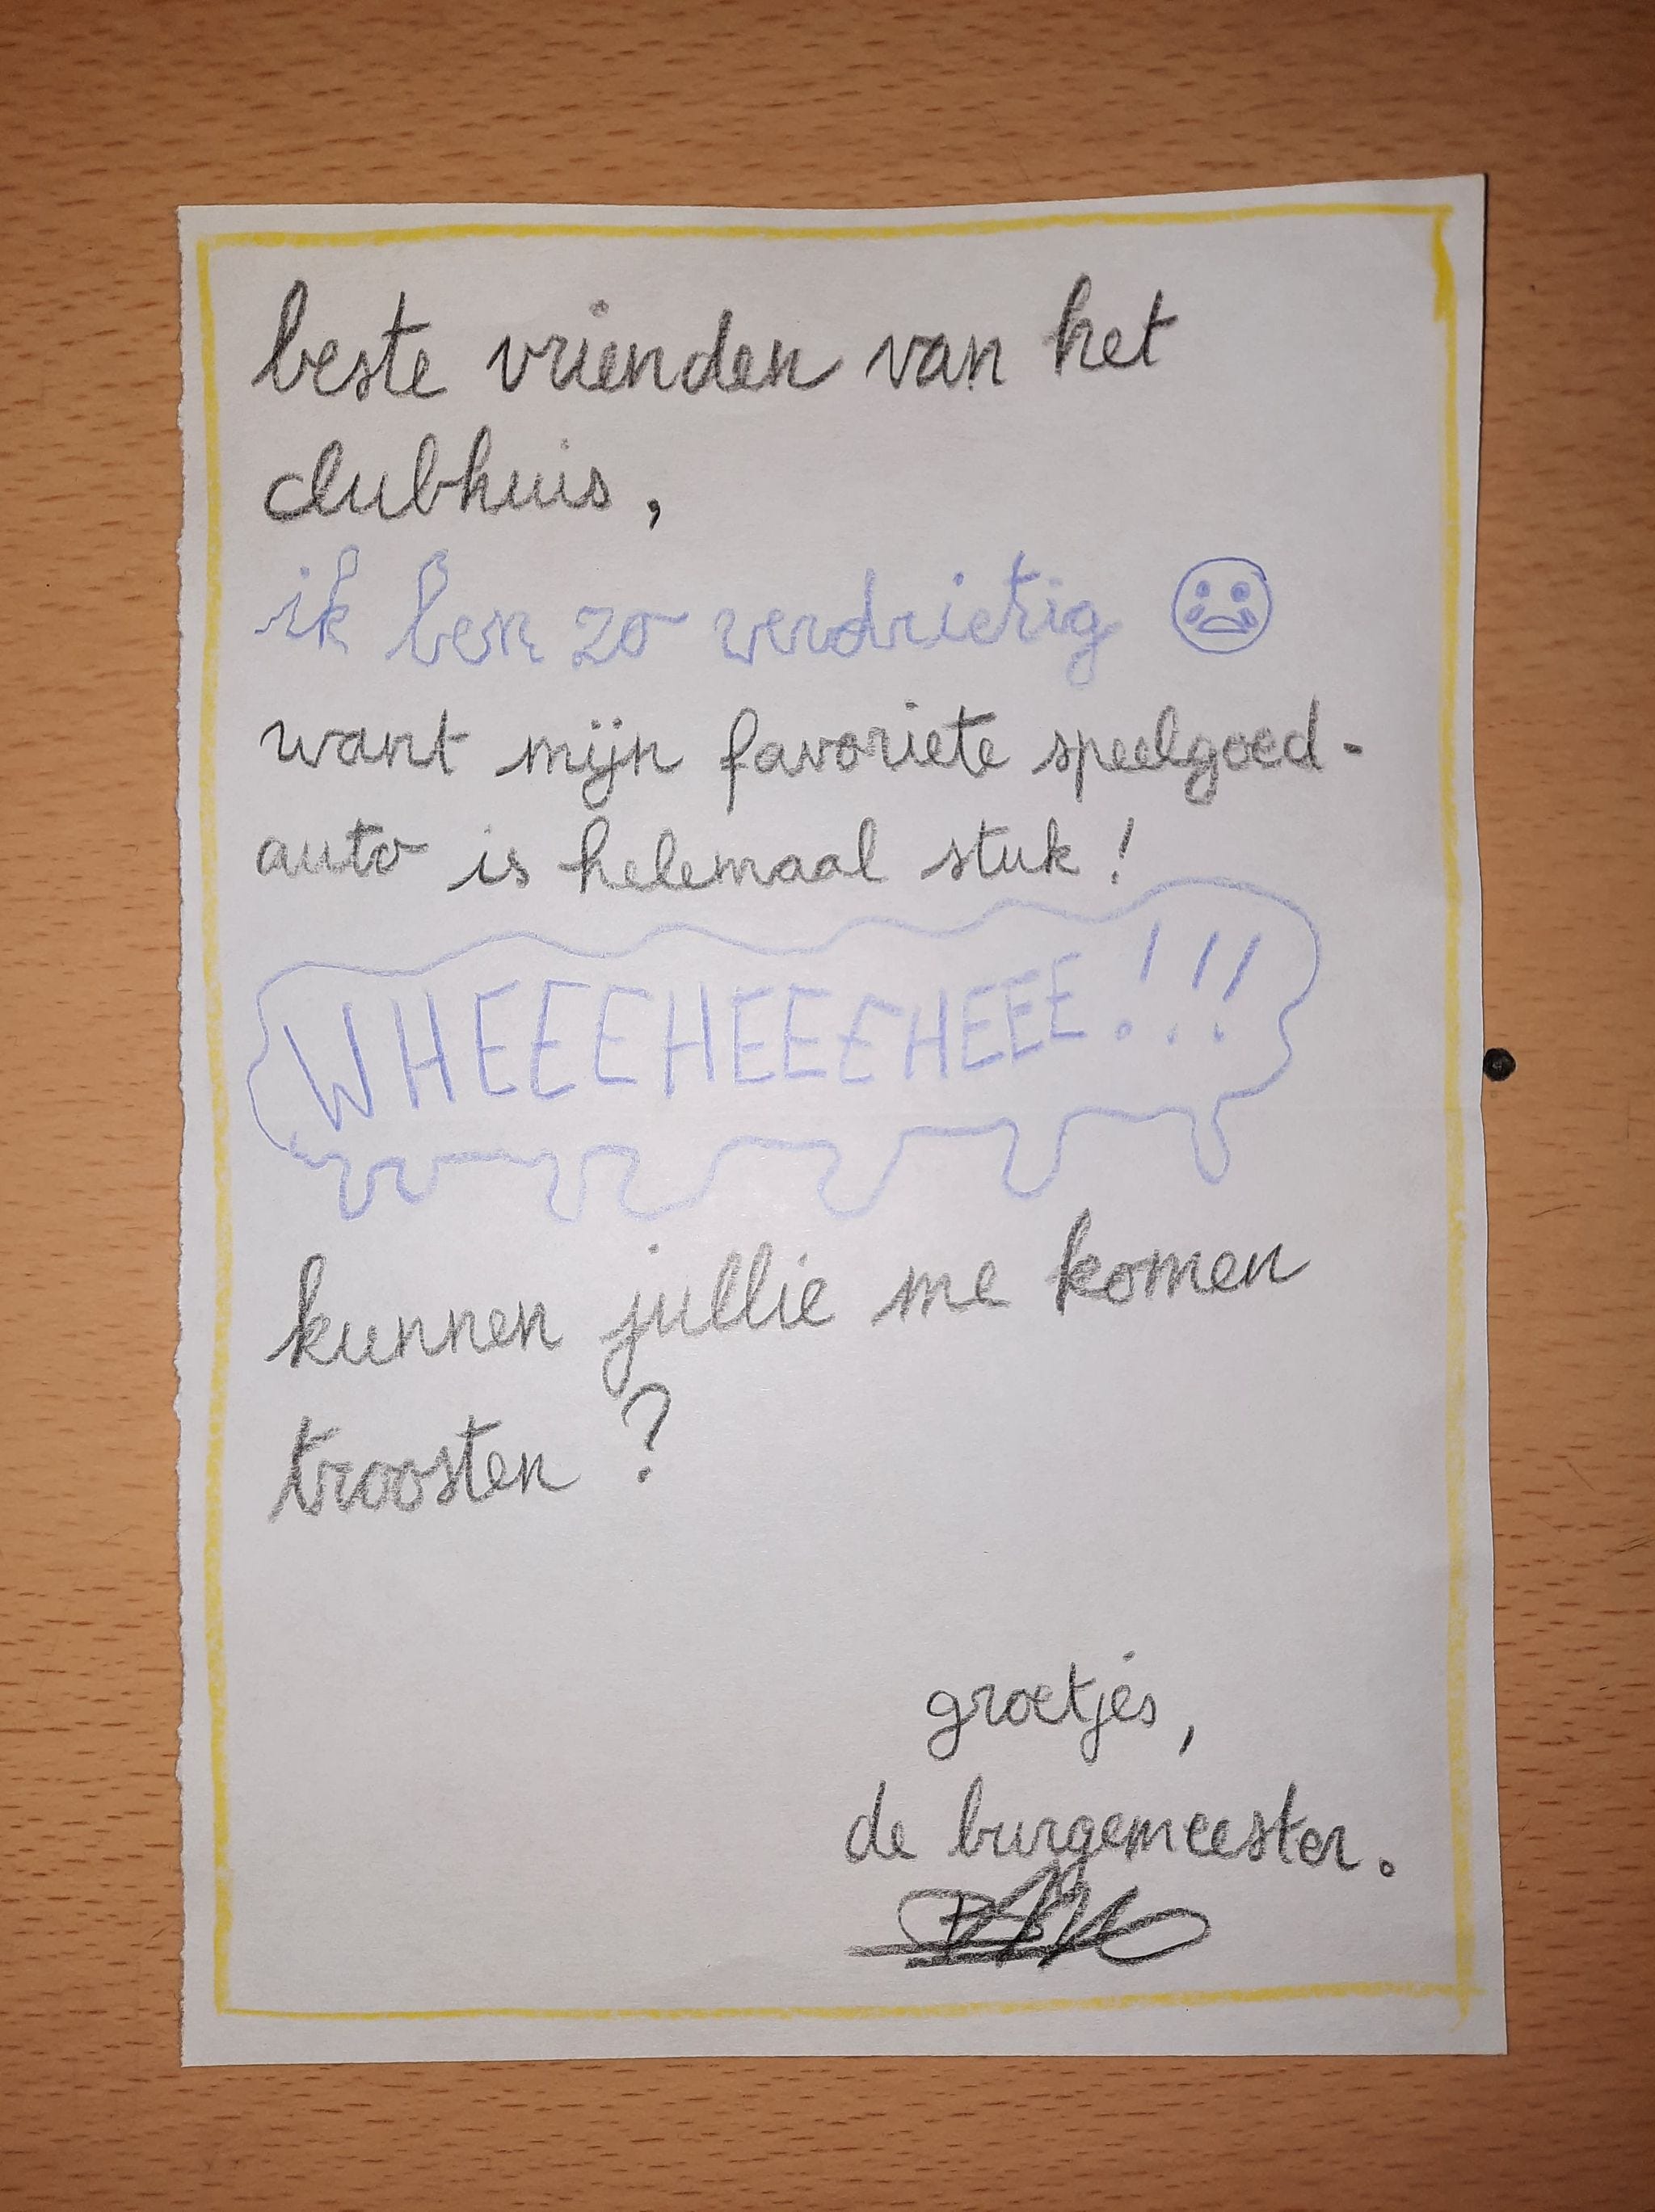 beste vrienden van het
clubhuis,
ik ben zo verdrietig
want mijn favoriete speelgoed-
auto is helemaal stuk!
WHEEEHEEEHEEE!!!
kunnen jullie me komen
troosten?
groetjes,
de burgemeester.